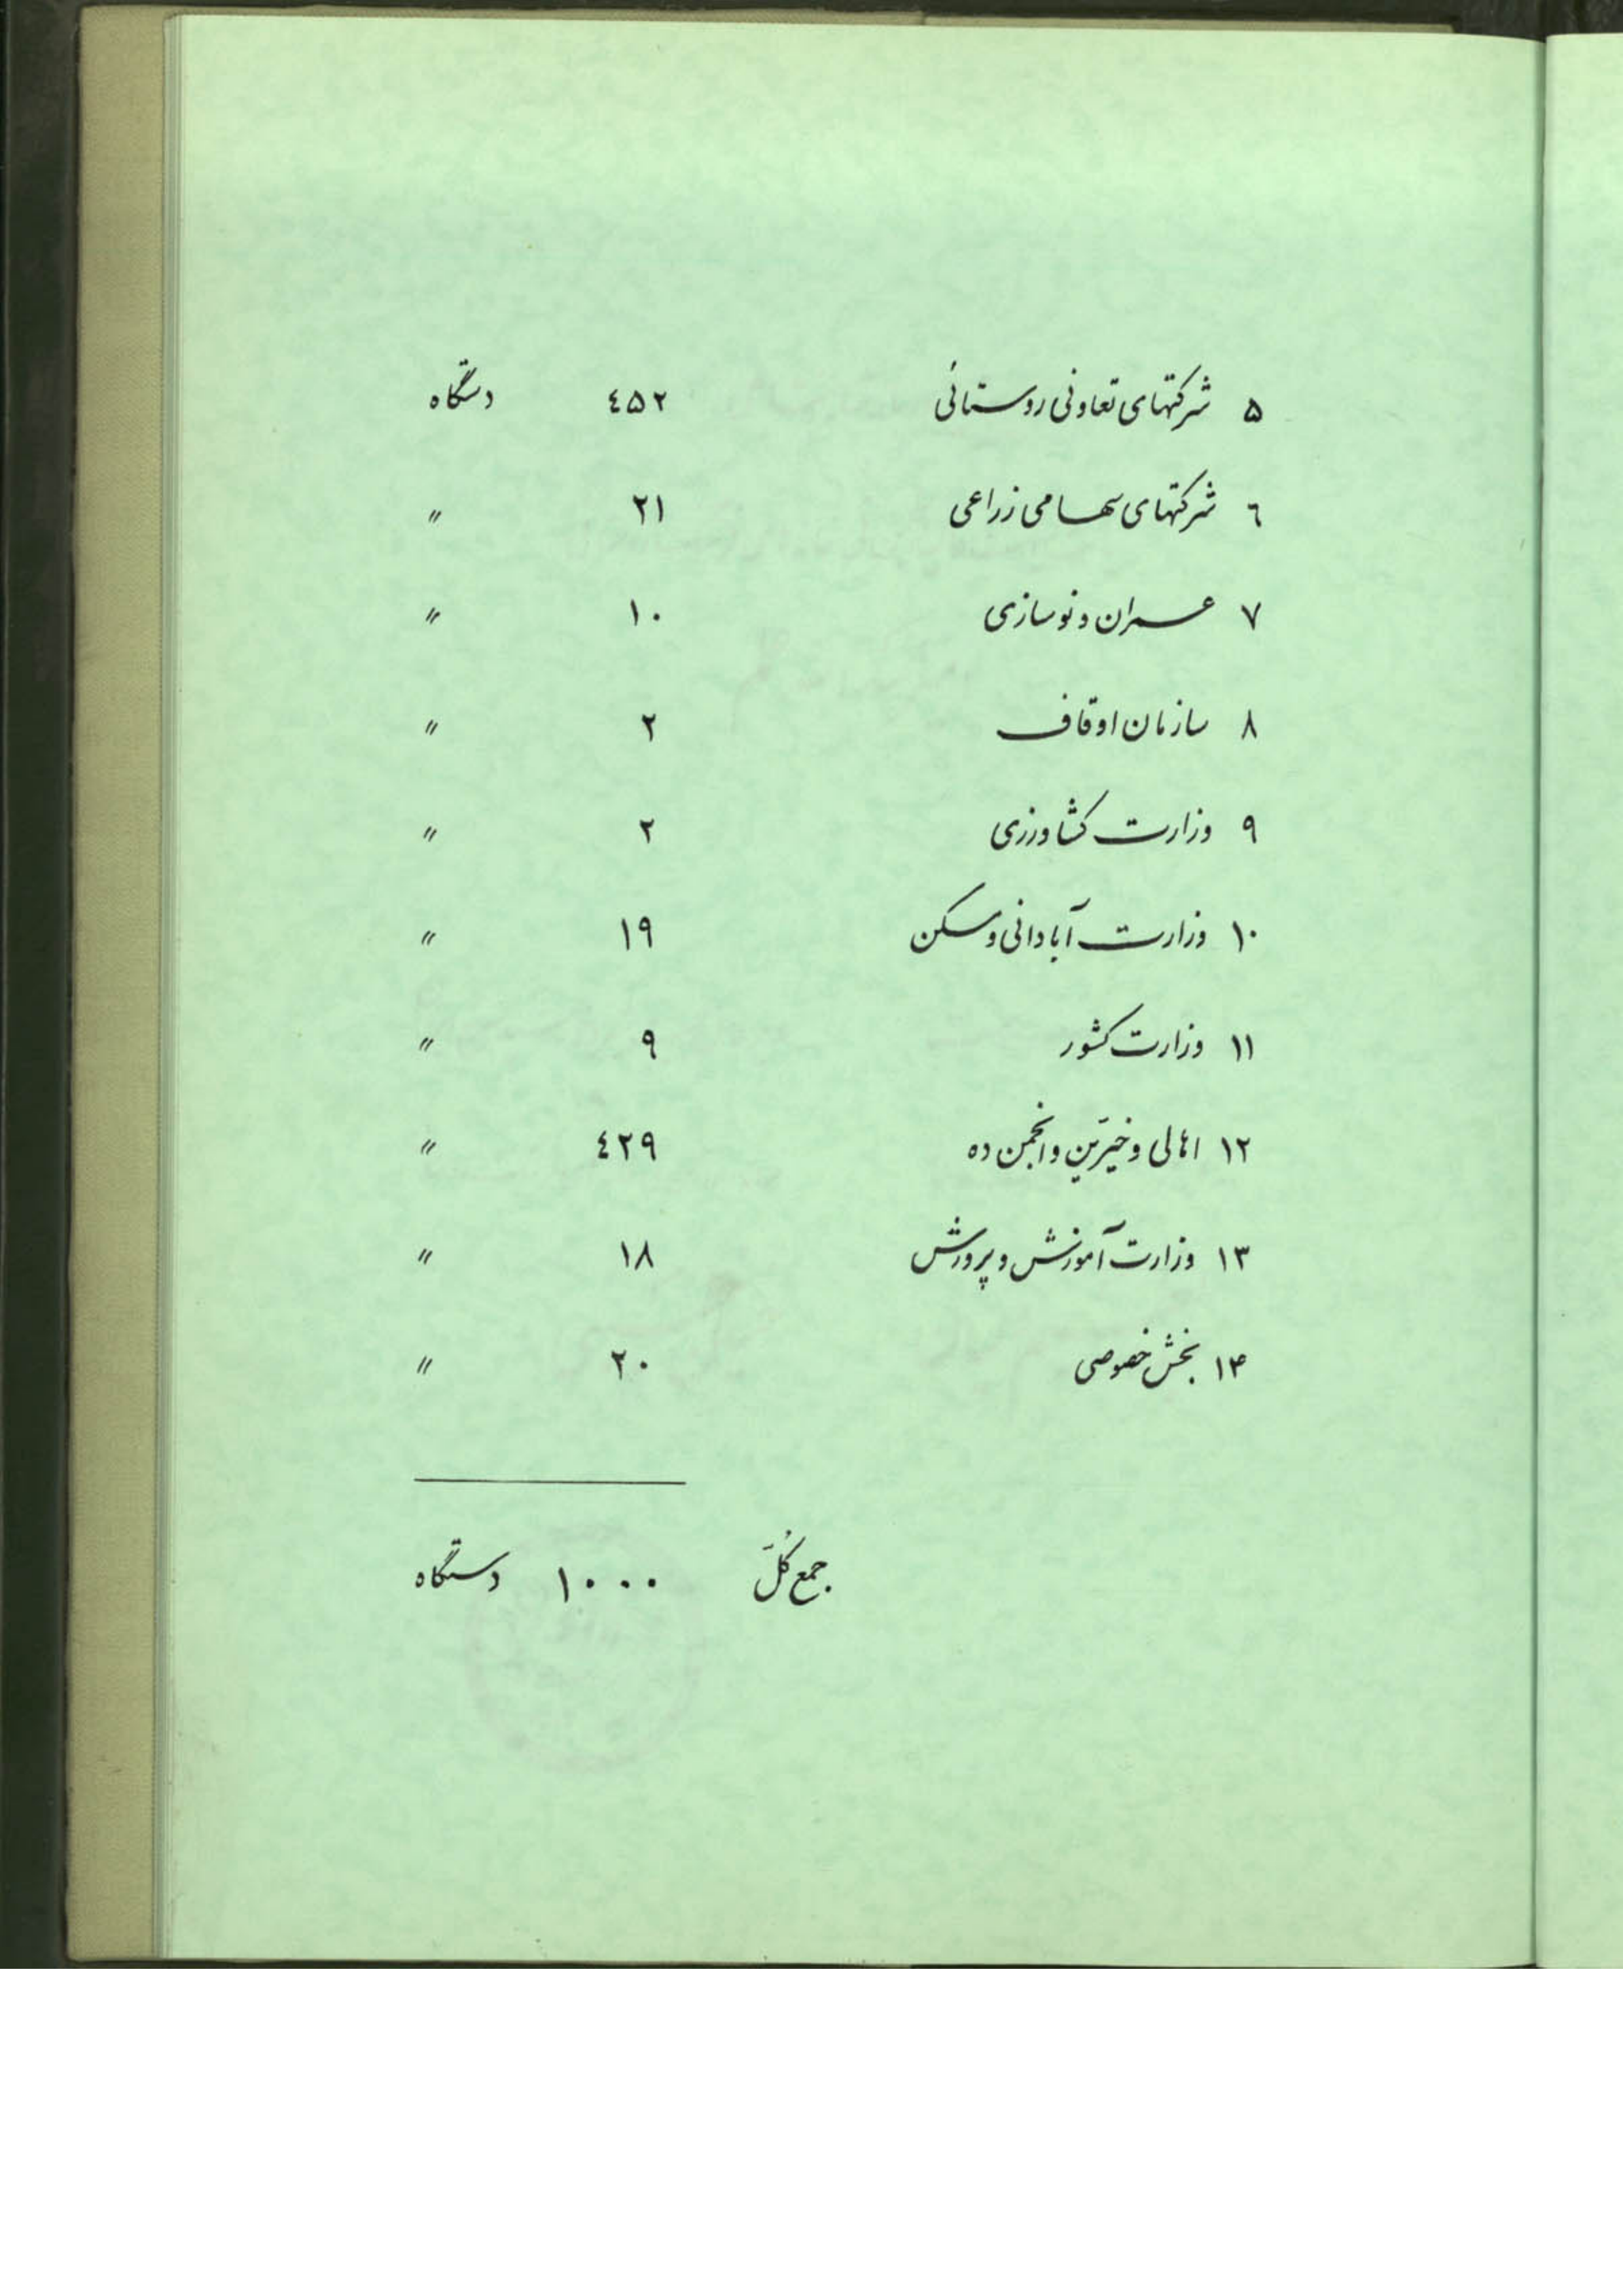 ۵ شرکتهای تعاونی روستائی ٤۵۲ دستگاه
٦ شرکتهای سهامی زراعی ۲۱ "
۷ عمران و نوسازی ۱۰ "
۸ سازمان اوقاف ۲ "
۹ وزارت کشاورزی ۲ "
۱۰ وزارت آبادانی و مسکن ۱۹ "
۱۱ وزارت کشور ۹ "
۱۲ اهالی و خیّرین و انجمن ده ٤۲۹ "
۱۳ وزارت آموزش و پرورش ۱۸ "
۱۴ بخش خصوصی ۲۰ "
جمع کُلّ ۱۰۰۰ دستگاه